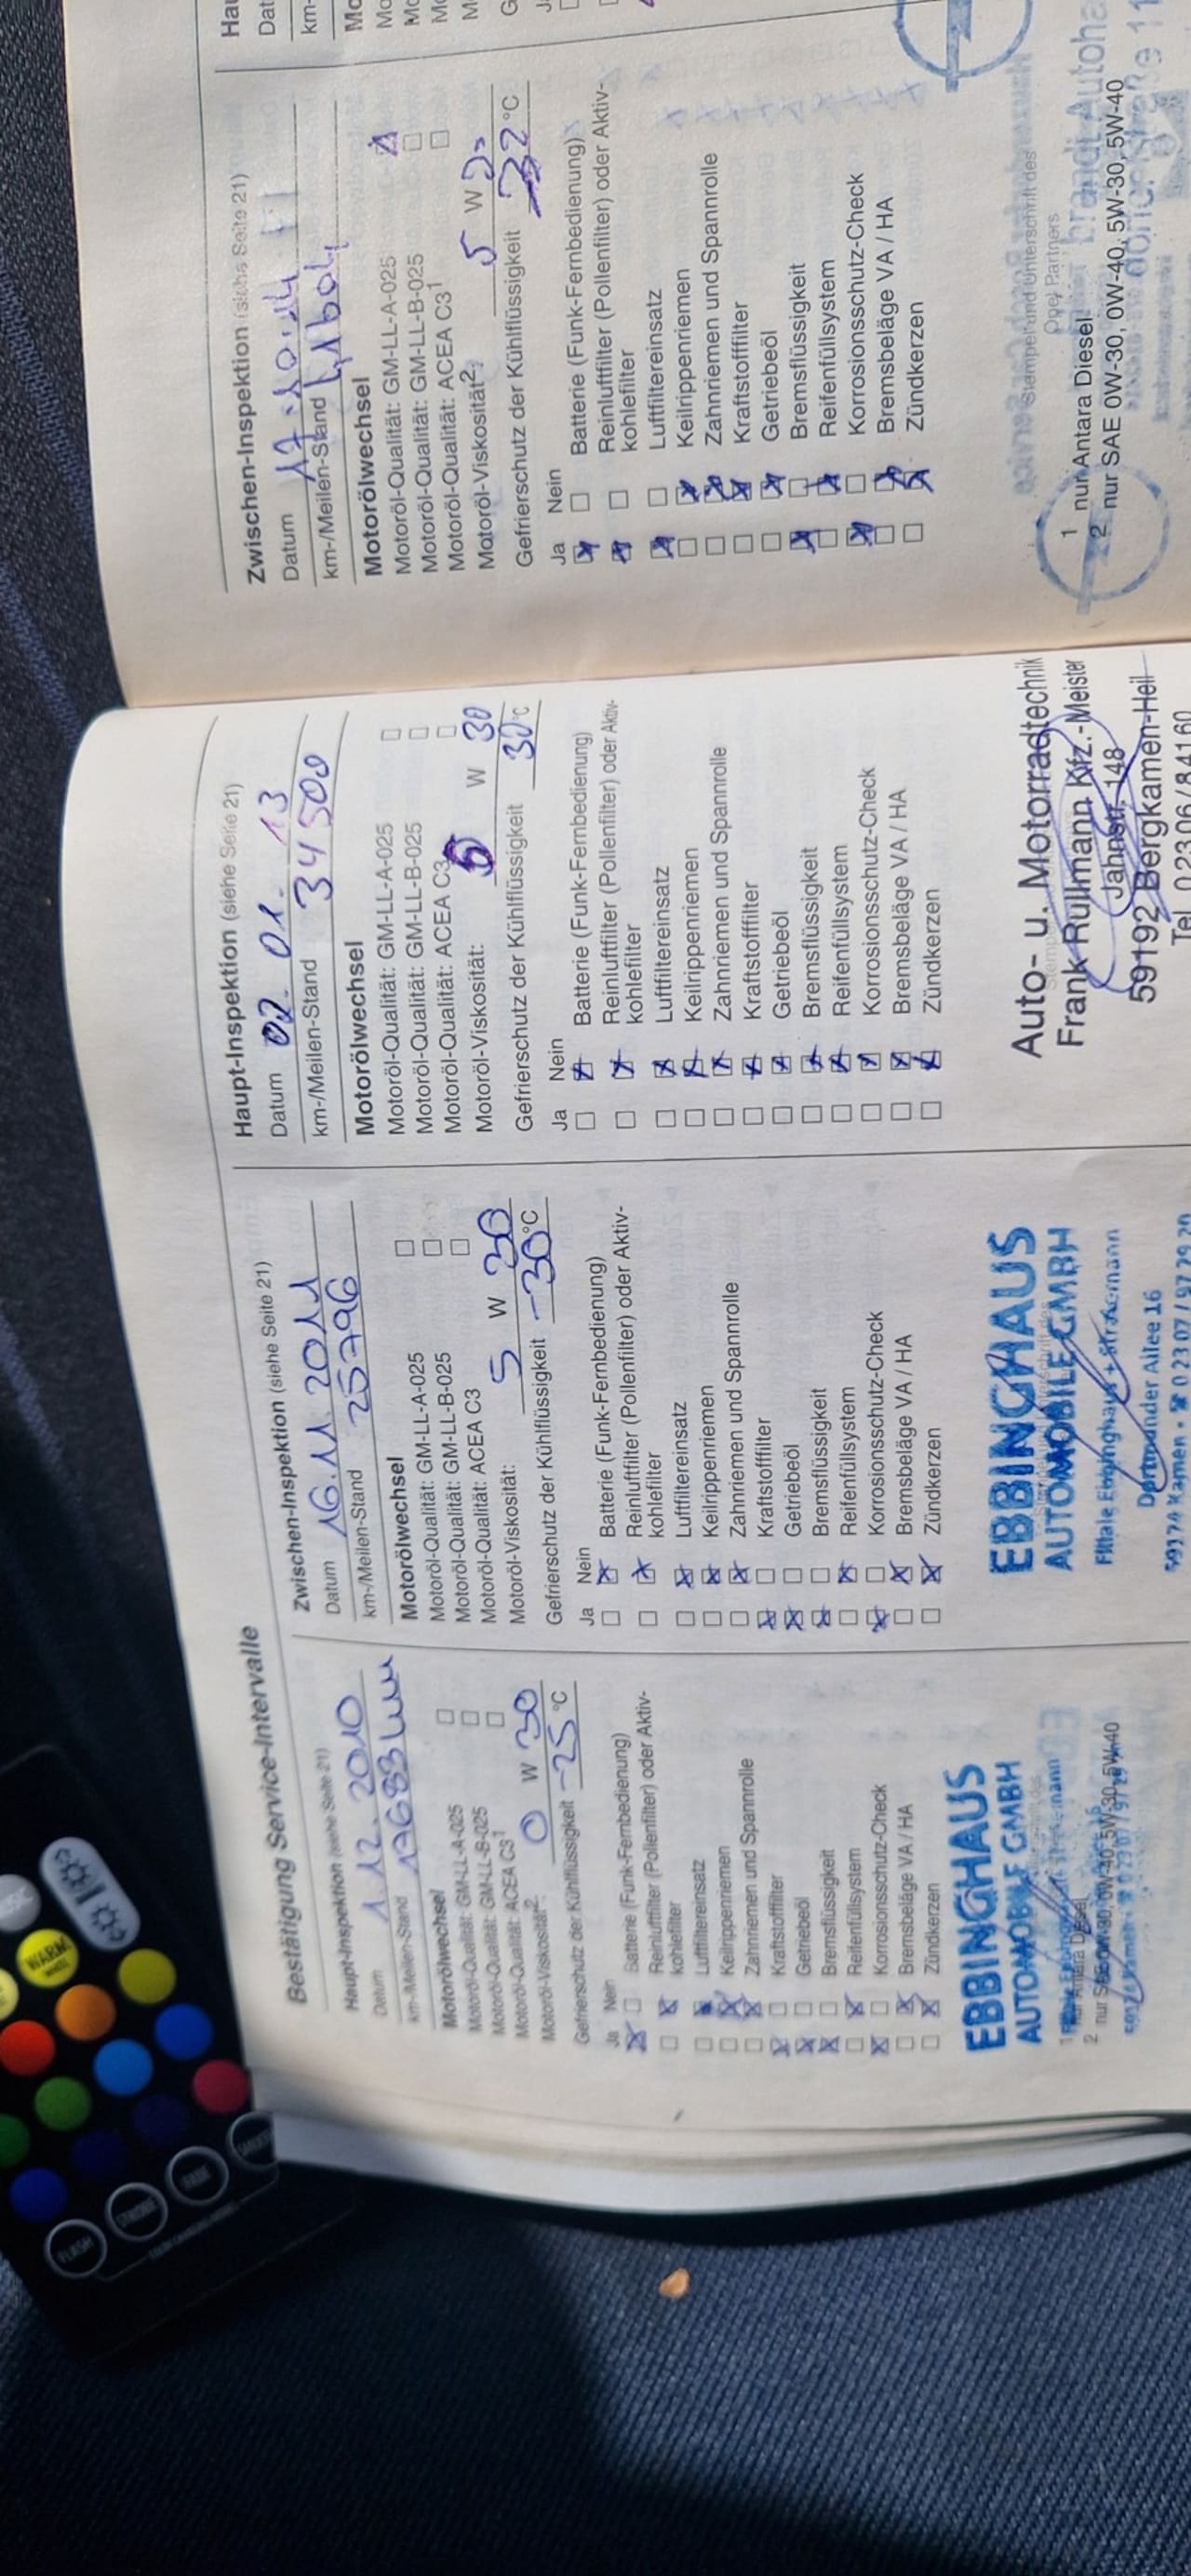 Bestätigung Service-Intervalle
Haupt-Inspektion (siehe Seite 21)
Datum 1.12.2010
km-/Meilen-Stand 17683 km
Motorölwechsel
Motoröl-Qualität: GM-LL-A-025
Motoröl-Qualität: GM-LL-B-025
Motoröl-Qualität: ACEA C3¹
Motoröl-Viskosität²: 0 W 30
Gefrierschutz der Kühlflüssigkeit -25 °C
Ja Nein
Batterie (Funk-Fernbedienung)
Reinluftfilter (Pollenfilter) oder Aktiv-
kohlefilter
Luftfiltereinsatz
Keilrippenriemen
Zahnriemen und Spannrolle
Kraftstofffilter
Getriebeöl
Bremsflüssigkeit
Reifenfüllsystem
Korrosionsschutz-Check
Bremsbeläge VA / HA
Zündkerzen
EBBINGHAUS
AUTOMOBILE GMBH
Zwischen-Inspektion (siehe Seite 21)
Datum 16.11.2011
km-/Meilen-Stand 25796
Motorölwechsel
Motoröl-Qualität: GM-LL-A-025
Motoröl-Qualität: GM-LL-B-025
Motoröl-Qualität: ACEA C3
Motoröl-Viskosität: 5 W 30
Gefrierschutz der Kühlflüssigkeit -30 °C
Ja Nein
Batterie (Funk-Fernbedienung)
Reinluftfilter (Pollenfilter) oder Aktiv-
kohlefilter
Luftfiltereinsatz
Keilrippenriemen
Zahnriemen und Spannrolle
Kraftstofffilter
Getriebeöl
Bremsflüssigkeit
Reifenfüllsystem
Korrosionsschutz-Check
Bremsbeläge VA / HA
Zündkerzen
EBBINGHAUS
AUTOMOBILE GMBH
Filiale Ebbinghaus
Dortmunder Allee 16
59174 Kamen · ☎ 0 23 07 / 97 29 20
Haupt-Inspektion (siehe Seite 21)
Datum 02.01.13
km-/Meilen-Stand 34500
Motorölwechsel
Motoröl-Qualität: GM-LL-A-025
Motoröl-Qualität: GM-LL-B-025
Motoröl-Qualität: ACEA C3
Motoröl-Viskosität: 5 W 30
Gefrierschutz der Kühlflüssigkeit 30 °C
Ja Nein
Batterie (Funk-Fernbedienung)
Reinluftfilter (Pollenfilter) oder Aktiv-
kohlefilter
Luftfiltereinsatz
Keilrippenriemen
Zahnriemen und Spannrolle
Kraftstofffilter
Getriebeöl
Bremsflüssigkeit
Reifenfüllsystem
Korrosionsschutz-Check
Bremsbeläge VA / HA
Zündkerzen
Auto- u. Motorradtechnik
Frank Rullmann Kfz.-Meister
Jahnstr. 148
59192 Bergkamen-Heil
Tel. 02306/84160
Zwischen-Inspektion (siehe Seite 21)
Datum
km-/Meilen-Stand
Motorölwechsel
Motoröl-Qualität: GM-LL-A-025
Motoröl-Qualität: GM-LL-B-025
Motoröl-Qualität: ACEA C3¹
Motoröl-Viskosität²: 5 W
Gefrierschutz der Kühlflüssigkeit -32 °C
Ja Nein
Batterie (Funk-Fernbedienung)
Reinluftfilter (Pollenfilter) oder Aktiv-
kohlefilter
Luftfiltereinsatz
Keilrippenriemen
Zahnriemen und Spannrolle
Kraftstofffilter
Getriebeöl
Bremsflüssigkeit
Reifenfüllsystem
Korrosionsschutz-Check
Bremsbeläge VA / HA
Zündkerzen
Stempel und Unterschrift des
Opel Partners
1 nur Antara Diesel
2 nur SAE 0W-30, 0W-40, 5W-30, 5W-40
WARM
FLASH
STROBE
FADE